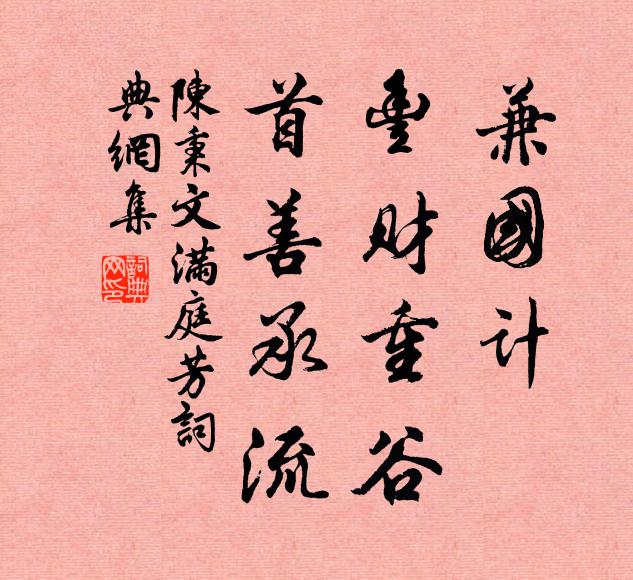 兼國計
豐財重谷
首善承流
陳秉文滿庭芳詞
典網集
詞典
网印